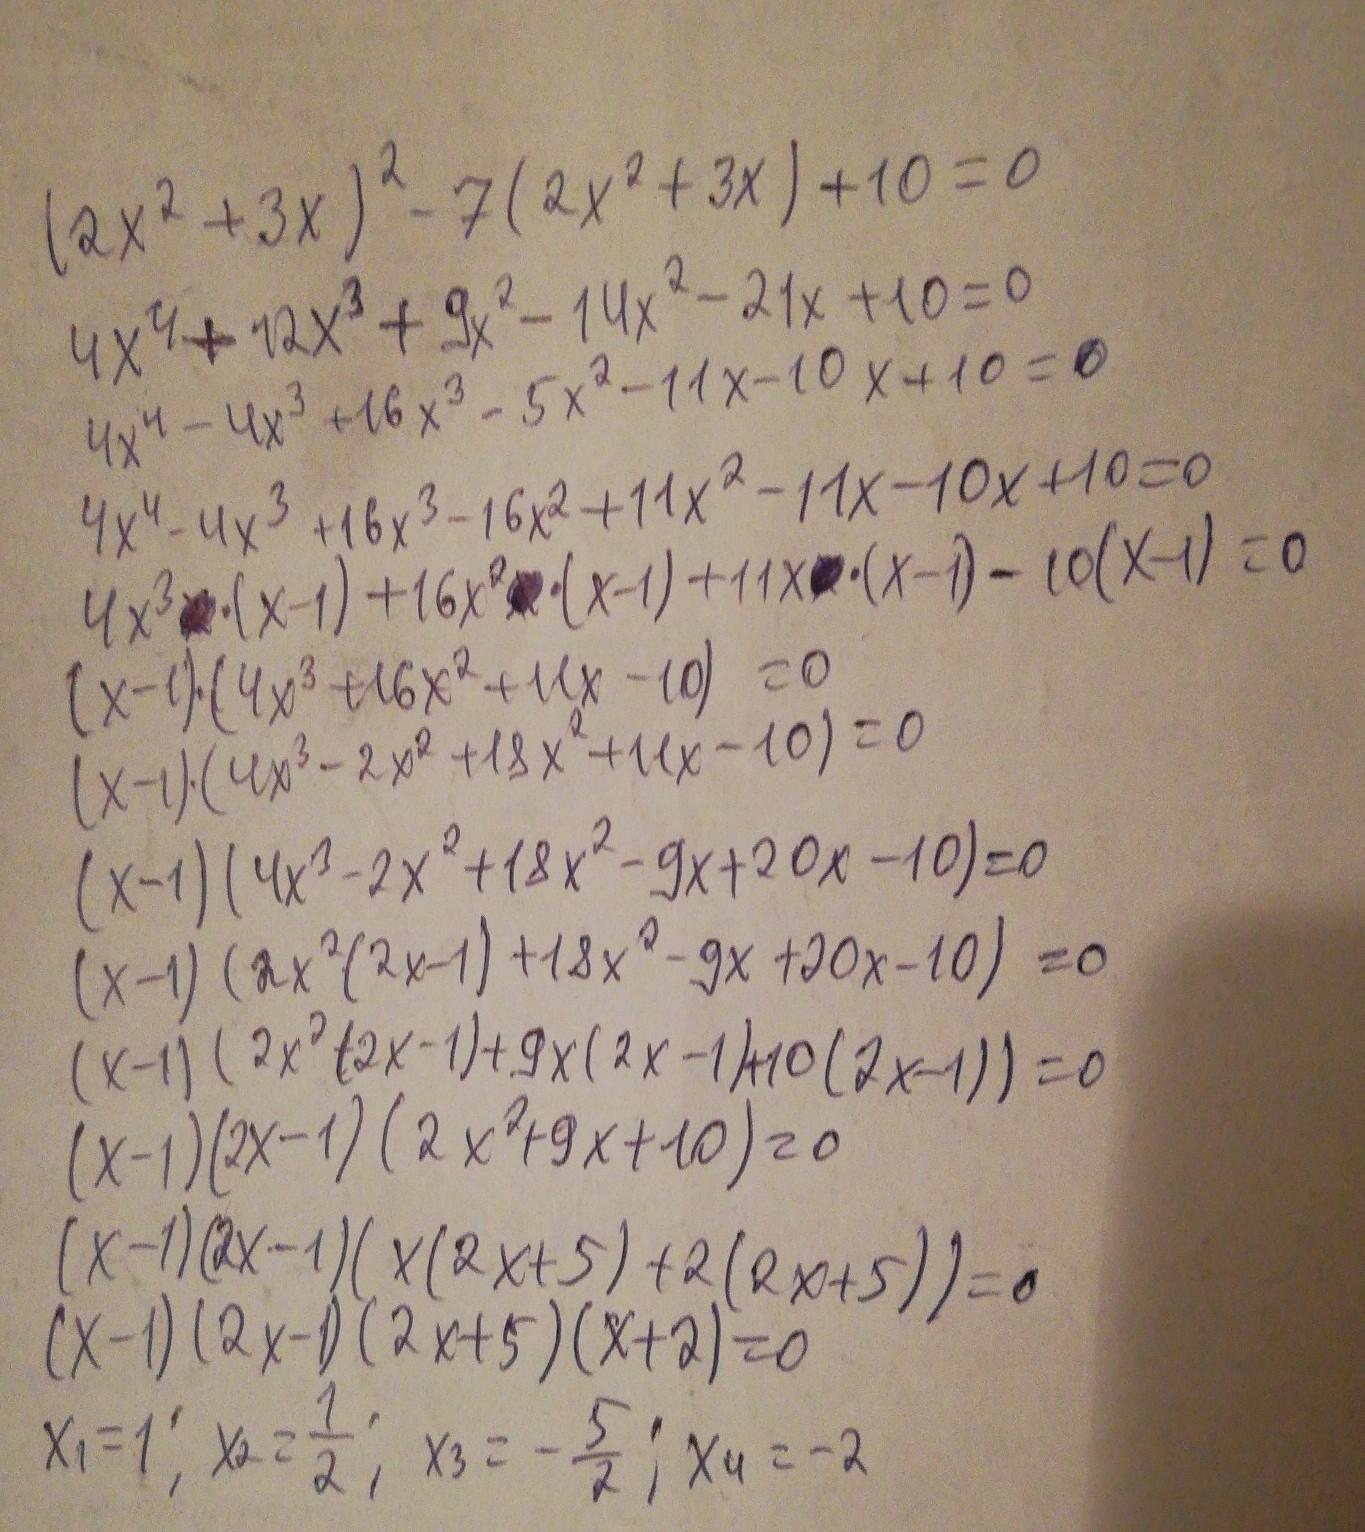 (2x² + 3x)² - 7(2x² + 3x) + 10 = 0
4x⁴ + 12x³ + 9x² - 14x² - 21x + 10 = 0
4x⁴ - 4x³ + 16x³ - 5x² - 11x - 10x + 10 = 0
4x⁴ - 4x³ + 16x³ - 16x² + 11x² - 11x - 10x + 10 = 0
4x³·(x-1) + 16x²·(x-1) + 11x·(x-1) - 10(x-1) = 0
(x-1)·(4x³ + 16x² + 11x - 10) = 0
(x-1)·(4x³ - 2x² + 18x² + 11x - 10) = 0
(x-1)(4x³ - 2x² + 18x² - 9x + 20x - 10) = 0
(x-1)(2x²(2x-1) + 18x² - 9x + 20x - 10) = 0
(x-1)(2x²(2x-1) + 9x(2x-1) + 10(2x-1)) = 0
(x-1)(2x-1)(2x² + 9x + 10) = 0
(x-1)(2x-1)(x(2x+5) + 2(2x+5)) = 0
(x-1)(2x-1)(2x+5)(x+2) = 0
x₁ = 1; x₂ = 1/2; x₃ = -5/2; x₄ = -2